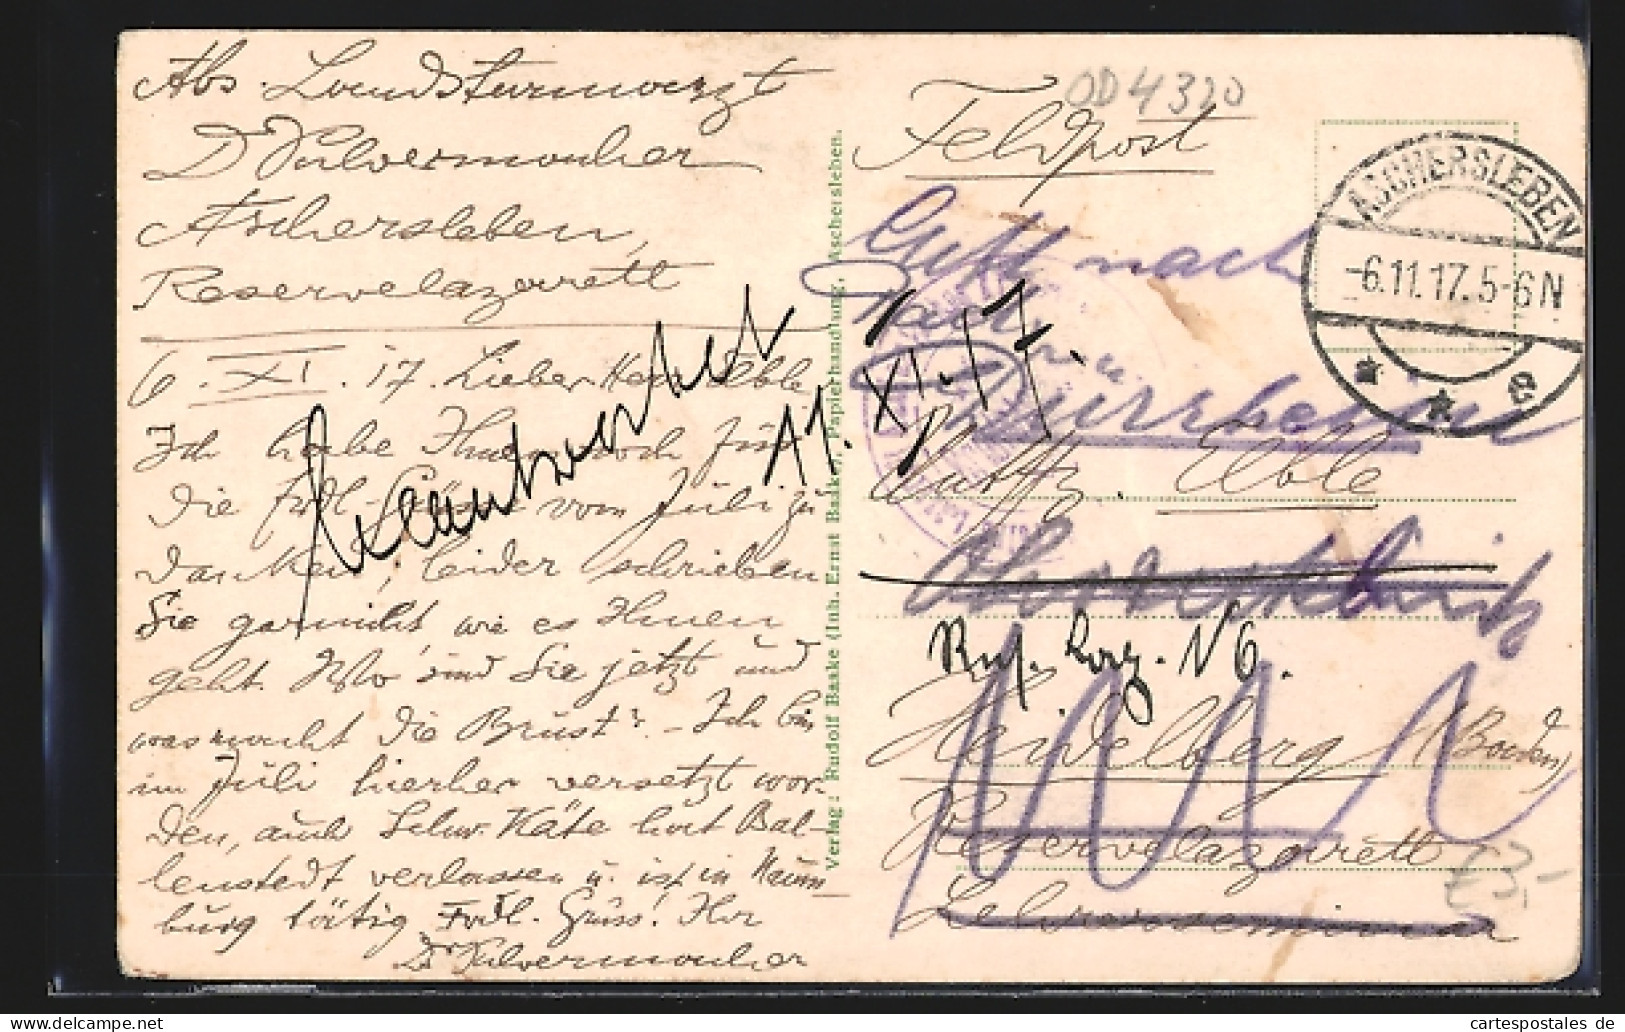 Abs. Landsturmarzt
Dr Pulvermacher
Aschersleben,
Reservelazarett
6. XI. 17. Lieber Herr Elble
Ich habe Ihnen noch für
die frdl. Grüsse vom Juli zu
danken, leider schrieben
Sie garnicht, wie es Ihnen
geht. Wo sind Sie jetzt und
was macht die Brust? – Ich bin
im Juli hierher versetzt wor-
den, auch Schw. Käte hat Bal-
lenstedt verlassen u. ist in Naum-
burg tätig. Frdl. Gruss! Ihr
Dr Pulvermacher
Beantwortet 11. XI. 17.
Verlag: Rudolf Baake (Inh. Ernst Baake), Papierhandlung, Aschersleben.
OD 4320
Feldpost
ASCHERSLEBEN
-6.11.17. 5-6 N
* * e
nach
Elble
Res. Laz. N 6.
Heidelberg (Baden)
Reservelazarett
Lehrerseminar
€3,-
cartespostales de